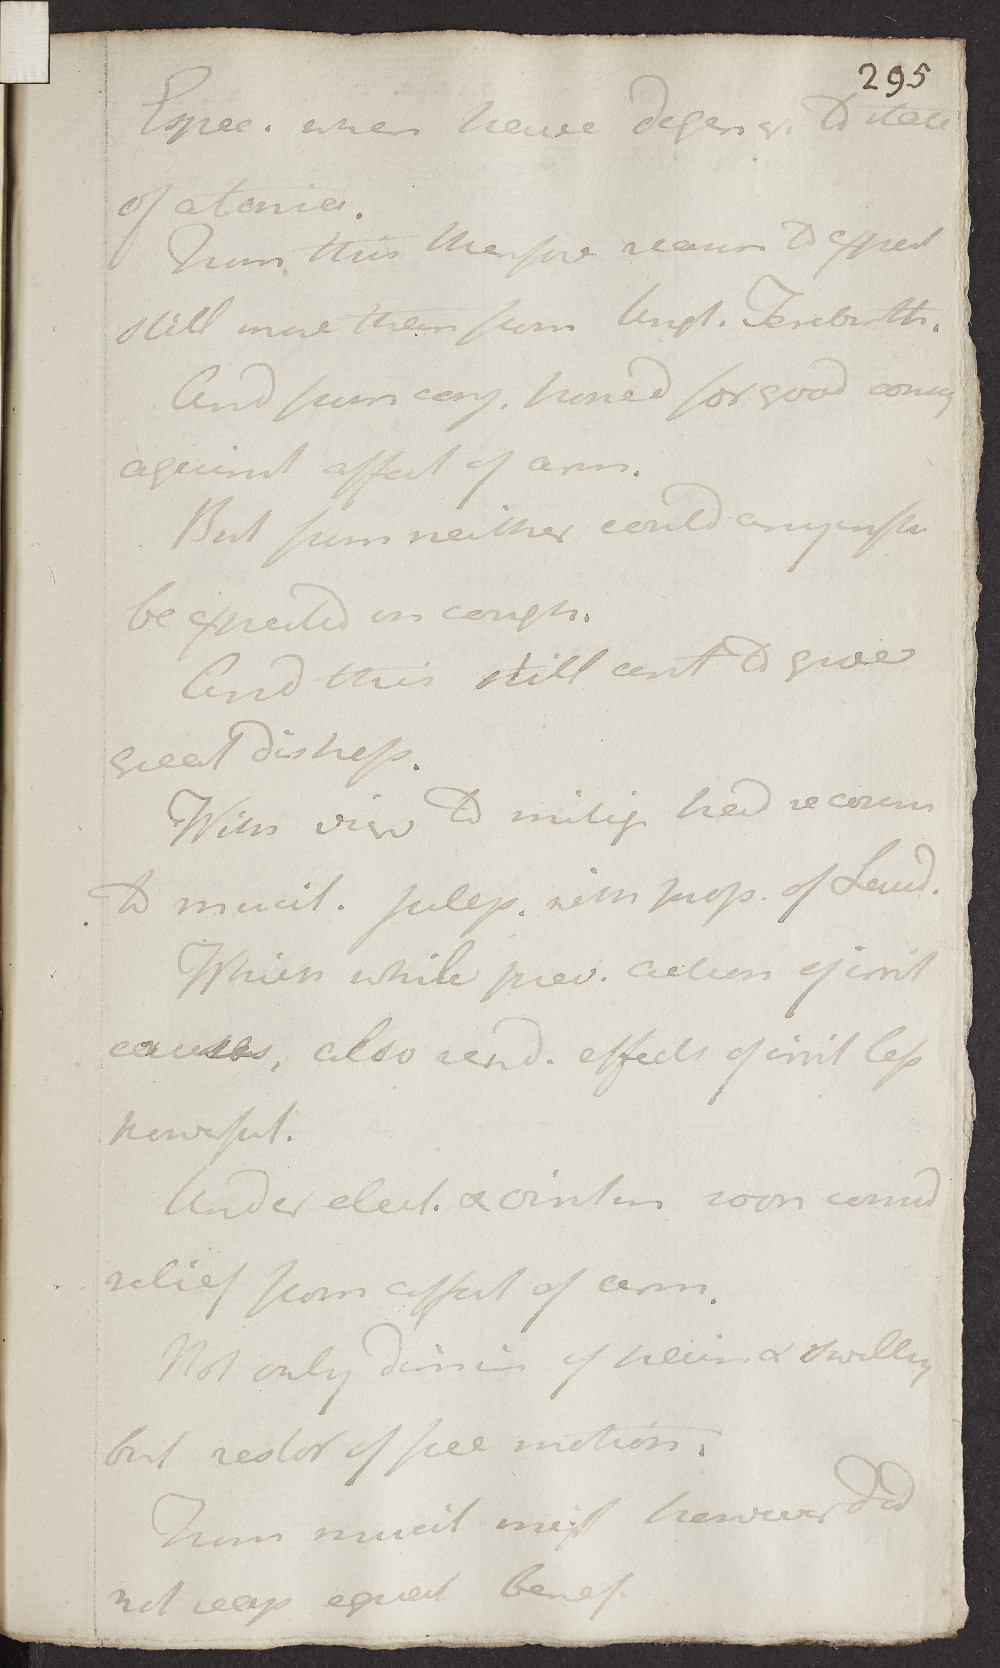 295
Espec. when hence degener. to state
of atonia.
From this therefore reason to expect
still more than from Ungt. Terebinth.
And from conj. hoped for good conseq
against affect of arm.
But from neither could any influ
be expected on cough.
And this still cont to give
great distress.
With view to mitig. had recourse
to mucil. julep. with prop. of Laud.
Which while prev. action of irrit
causes, also rend. effects of irrit less
powerful.
Under elect. & ointm soon
relief from affect of arm.
Not only dimin of pain & swelling
but restor of free motion.
From mucil mixt however did
not reap equal benef.